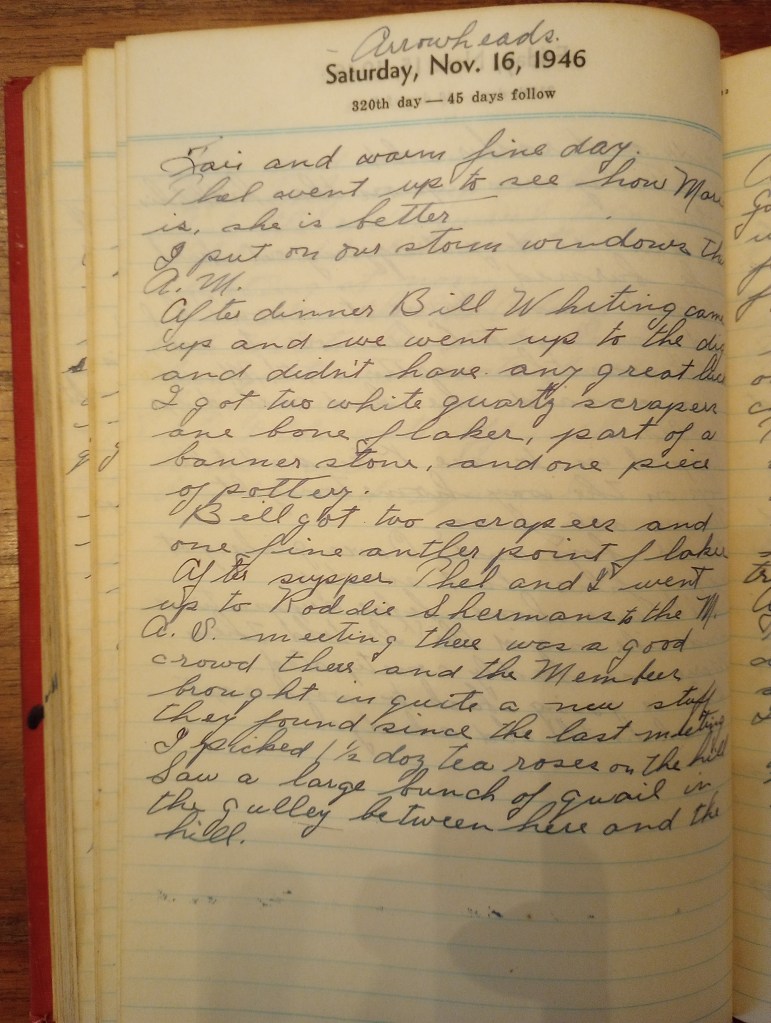 Arrowheads.
Saturday, Nov. 16, 1946
320th day — 45 days follow
Fair and warm fine day.
Thel went up to see how Mar
is, she is better
I put on our storm windows th
A. M.
After dinner Bill Whiting cam
up and we went up to the dig
and didn't have any great luc
I got two white quartz scrapers
one bone flaker, part of a
banner stone, and one piece
of pottery.
Bill got two scrapers and
one fine antler point flaker
After supper Thel and I went
up to Roddie Shermans to the M.
A. S. meeting there was a good
crowd there and the Members
brought in quite a new stuff
they found since the last meeting
I picked 1 1/2 doz tea roses on the hill
Saw a large bunch of quail in
the gulley between here and the
hill.